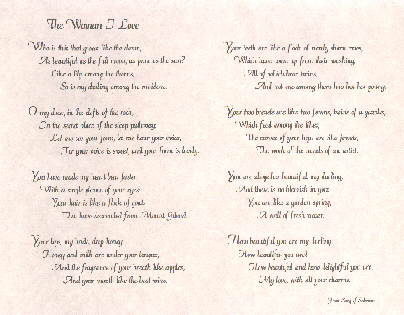 The Woman I Love
Who is this that grows like the dawn,
As beautiful as the full moon, as pure as the sun?
Like a lily among the thorns,
So is my darling among the maidens.
O my dove, in the clefts of the rock,
In the secret place of the steep pathway,
Let me see your form, let me hear your voice,
For your voice is sweet, and your form is lovely.
You have made my heart beat faster
With a single glance of your eyes
Your hair is like a flock of goats
That have descended from Mount Gilead.
Your lips, my bride, drip honey
Honey and milk are under your tongue,
And the fragrance of your breath like apples,
And your mouth like the best wine.
Your teeth are like a flock of newly shorn ewes,
Which have come up from their washing,
All of which bear twins,
And not one among them has lost her young.
Your two breasts are like two fawns, twins of a gazelle,
Which feed among the lilies,
The curves of your hips are like jewels,
The work of the hands of an artist.
You are altogether beautiful, my darling,
And there is no blemish in you.
You are like a garden spring,
A well of fresh water.
How beautiful you are my darling,
How beautiful you are!
How beautiful and how delightful you are,
My love, with all your charms.
From Song of Solomon